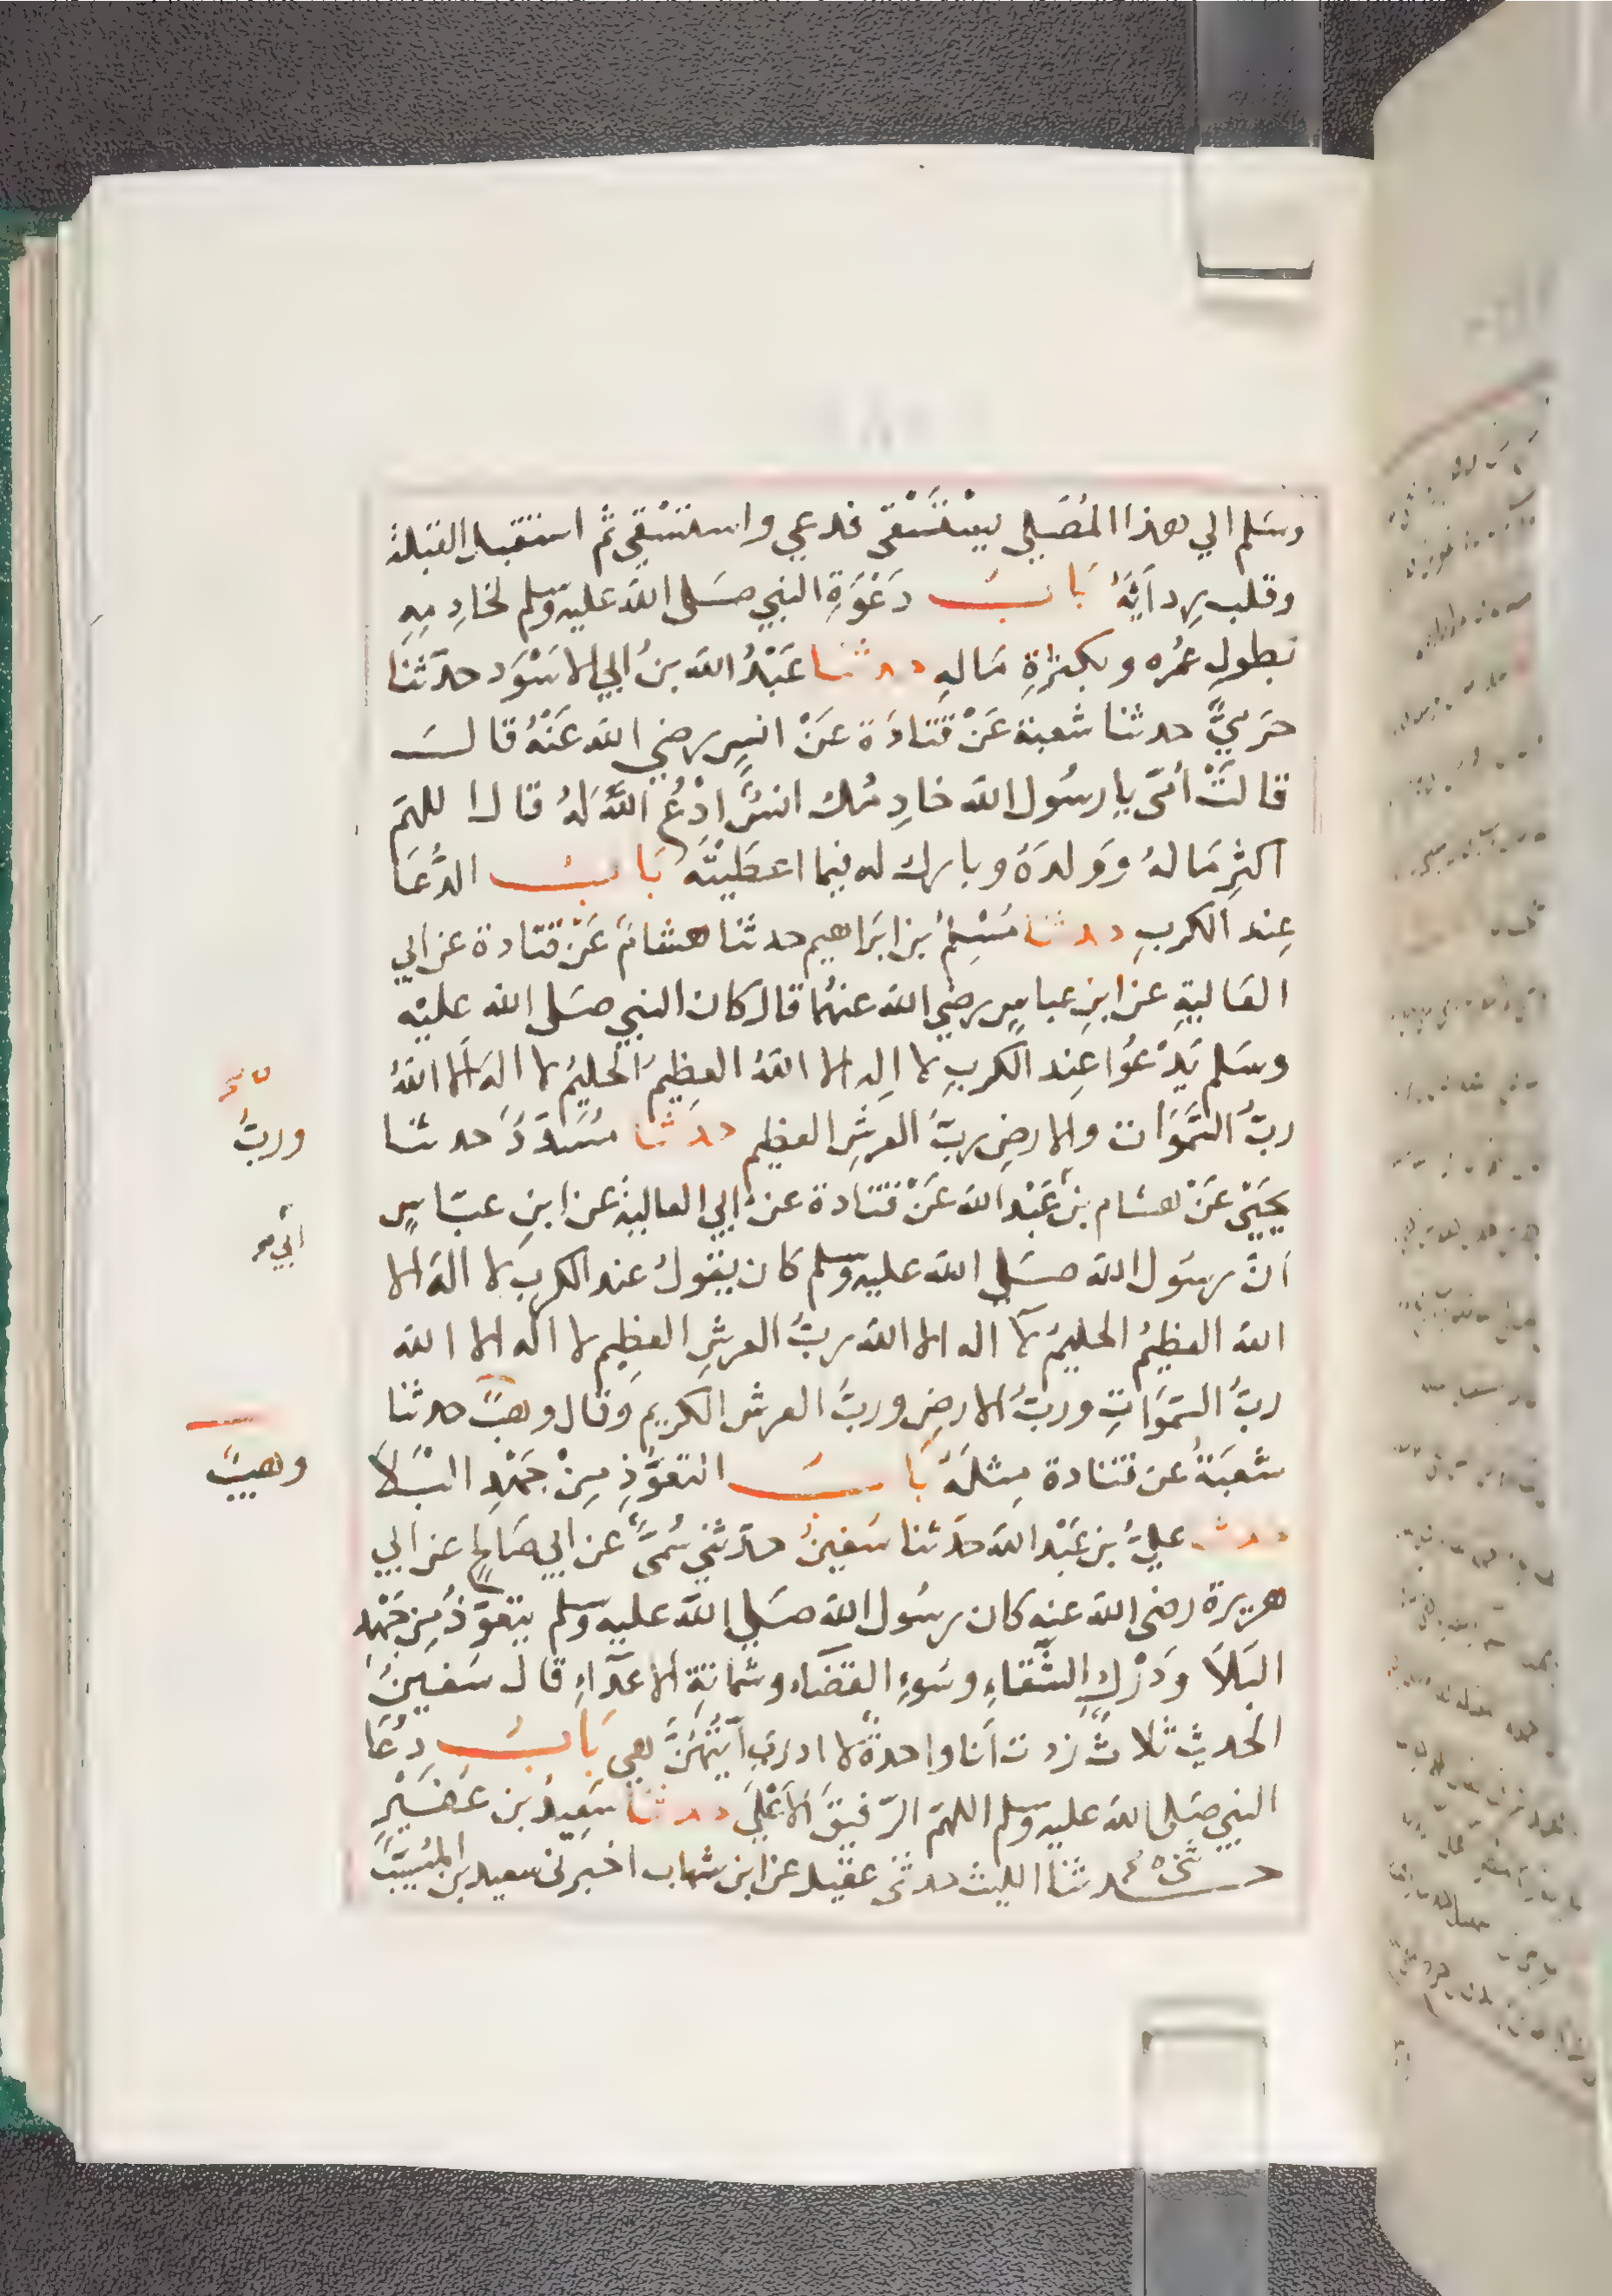 وسَلم الي هذا المُصَلي يستَسْقي فدعي واستسْقي ثم استقبل القبلة
وقلب رداَيَهُ بَابُ دَعْوَةِ النبي صَلى الله عليه وسلم لخادِمِهِ
بطولِ عمُره وبكثرةِ مَالهِ حدثنا عَبْدُ الله بنُ ابي الاسْوَد حدّثنَا
حَرَميٌّ حدثنا شعبة عَنْ قتادَة عَنْ انسٍ رضي الله عَنْهُ قالَ
قالَتْ أمّي يا رسُول الله خادِمُك انسٌ ادْعُ اللهَ لهُ قال اللهمّ
اكثِر مَالهُ وَوَلدَهُ وبارك له فيما اعطَيْتَه بَابُ الدُّعَا
عِند الكربِ حدثنا مُسْلِمُ بن ابرَاهيم حدثنا هشامٌ عَنْ قتادة عن ابي
العَاليةِ عن ابنِ عباسٍ رضي الله عنهُما قال كان النبي صَلى الله عليْه
وسَلم يَدْعُوا عِند الكربِ لا اِله الا اللهُ العظِيمُ الحليمُ لا الهَ الا اللهُ
ربُّ السَّمَوَات والارضِ ربُّ العرشِ العظيم حدثنا مُسَدَّدٌ حدثنا
يحيَى عَنْ هشام بنِ عَبْد الله عَنْ قتادة عن ابي العاليةِ عن ابنِ عبّاسٍ
انّ رسُول الله صَلي الله عليه وسلم كان يقولُ عند الكربِ لا الهَ الا
الله العظِيمُ الحليمُ لا اله الا الله ربُّ العرشِ العظِيم لا اله الا الله
ربُّ السّمَوَاتِ وربُّ الارضِ وربُّ العرش الكريم وَقال وهبٌ حدثنا
شعبَةُ عن قتادة مِثلَهُ بَابُ التعَوُّذِ مِنْ جَهْدِ البَلَا
حدثنا عليُّ بن عَبْد الله حدّثنا سَفينُ حدّثني سُمَيٌّ عن ابي صَالحٍ عن ابي
هريرة رضي الله عنه كان رسُول الله صَلي الله عليه وسَلم يتعَوّذُ مِن جَهْدِ
البَلَا وَدَرْكِ الشَّقاءِ وسُوءِ القضَاء وشماتةِ الاعدَاءِ قال سَفينُ
الحديث ثلاثٌ زدت اَنا واحدةً لا ادري ايَّتُهُنَّ هي بَابُ دُعَا
النبي صَلى الله عليه وسلم اللهمّ الرّفيقَ الاَعْلَي حدثنا سَعِيدُ بن عُفَيْرٍ
حدثنا الليث حدثني عقيل عن ابن شهاب اخبرني سعيد بن المُسَيَّب
وربُّ
ابي
وهيبٌ